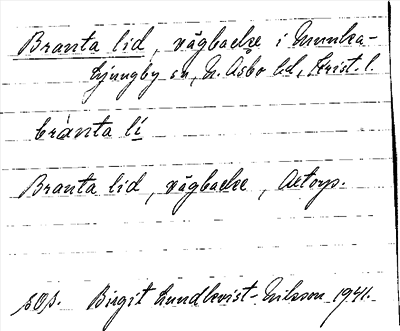 Branta lid, vägbacke i Munka-
Ljungby sn, N. Åsbo hd, Krist. l.
brànta lí
Branta lid, vägbacke,
s0s. Birgit Lundkvist-Nilsson 1941.